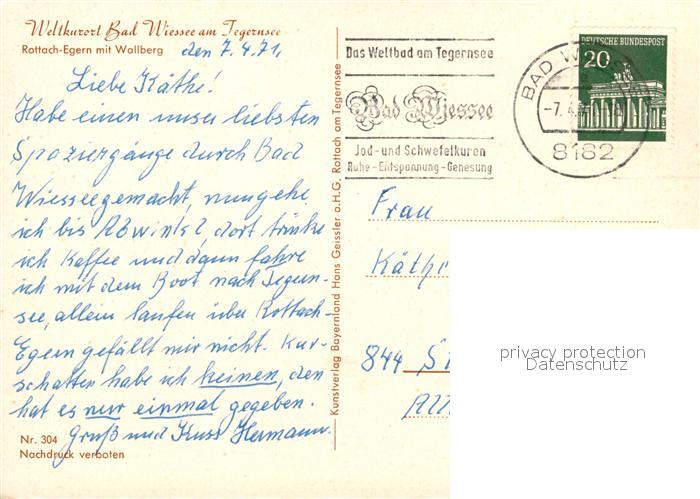 Weltkurort Bad Wiessee am Tegernsee
Rottach-Egern mit Wallberg
den 7.4.71,
Liebe Käthe!
Habe einen unser liebsten
Spaziergänge durch Bad
Wiessee gemacht, nun gehe
ich bis Abwinkl, dort trinke
ich Kaffee und dann fahre
ich mit dem Boot nach Tegern-
see, allein laufen über Rottach-
Egern gefällt mir nicht. Kur-
schatten habe ich keinen, den
hat es nur einmal gegeben.
Gruß und Kuss Hermann.
Nr. 304
Nachdruck verboten
Kunstverlag Bayernland Hans Geissler o.H.G. Rottach am Tegernsee
Das Weltbad am Tegernsee
Bad Wiessee
Jod- und Schwefelkuren
Ruhe-Entspannung-Genesung
BAD W
-7.4.
8182
DEUTSCHE BUNDESPOST
20
Frau
Käth
844 St
privacy protection
Datenschutz